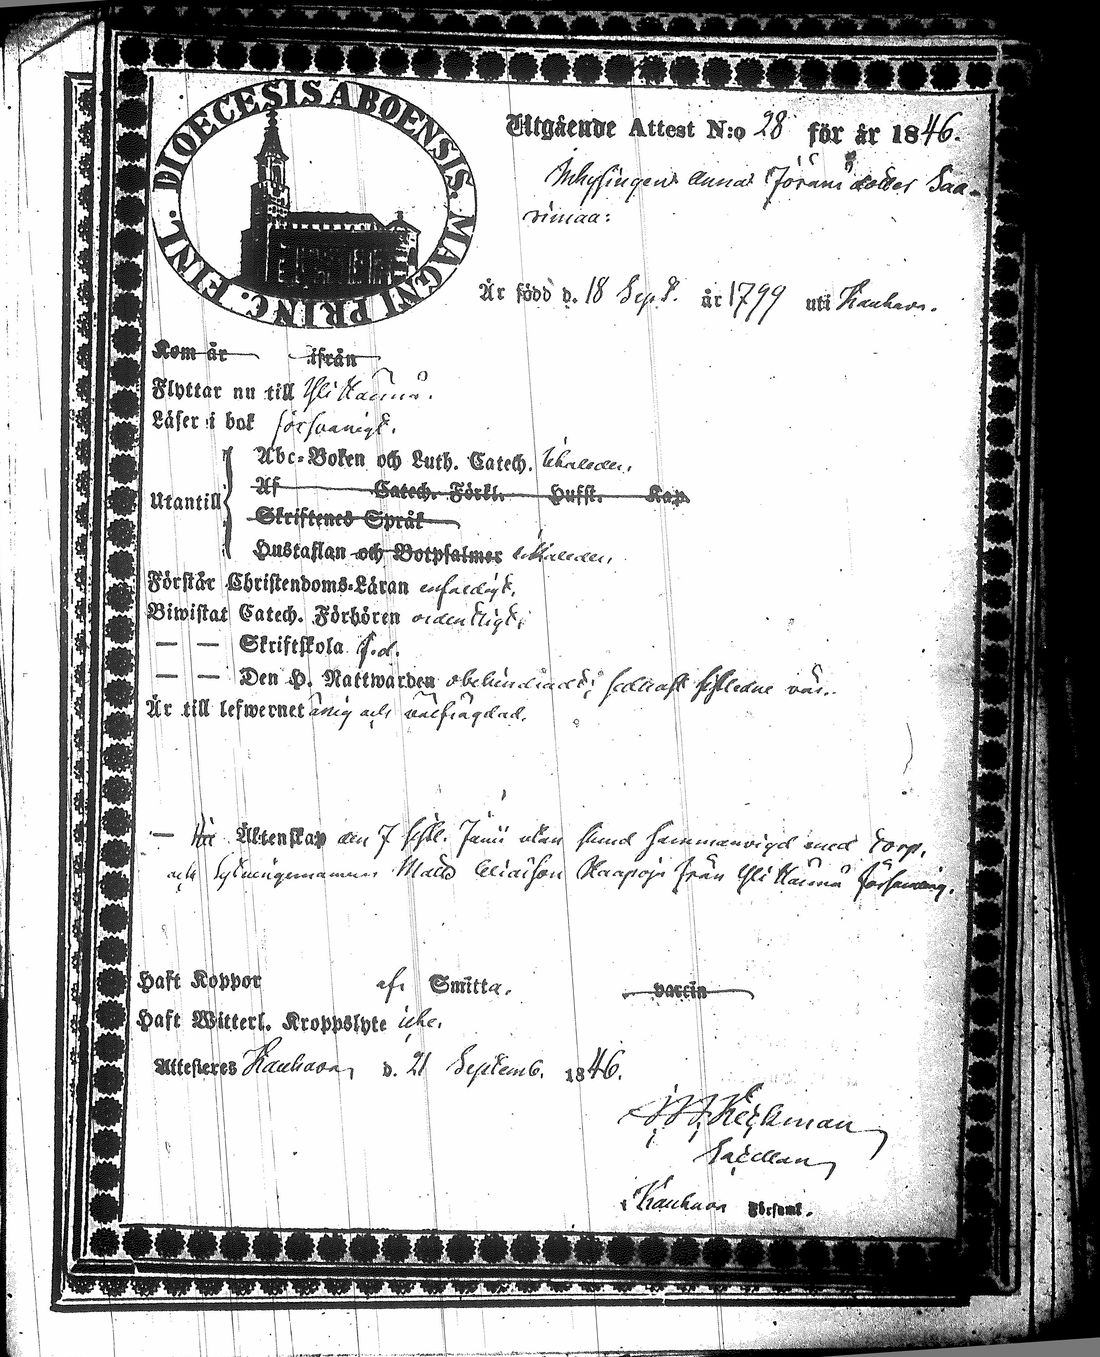 DIOECESIS ABOENSIS. MAGNI PRINC. FINL.
Utgående Attest N:o 28 för år 1846.
Inhysingen Anna Jörans dotter Saa-
rimaa:
Är född d. 18 Sept. år 1799 uti Kauhava.
Kom år ifrån
Flyttar nu till Yli Härmä.
Läser i bok försvarligt.
Utantill
Abc-Boken och Luth. Catech.
Af Catech. Förkl. Hufst. Kap
Skriftenes Språk
Hustaflan och Botpsalmer
Förstår Christendoms-Läran enfaldigt.
Biwistat Catech. Förhören ordentligt;
— — Skriftskola f.d.
— — Den H. Nattwarden obehindradt; sednast
Är till lefwernet ärlig och välfrägdad.
— Äktenskap den 7 sistl. Junii utan sammanvigd med torp.
och Matts Eliasson Haapoja från Yli Härmä församling.
Haft Koppor af Smitta. vaccin
Haft Witterl. Kroppslyte icke.
Attesteres Kauhava, d. 21 Septemb. 1846.
Heikman
Sacellan,
i Kauhava Förſaml.